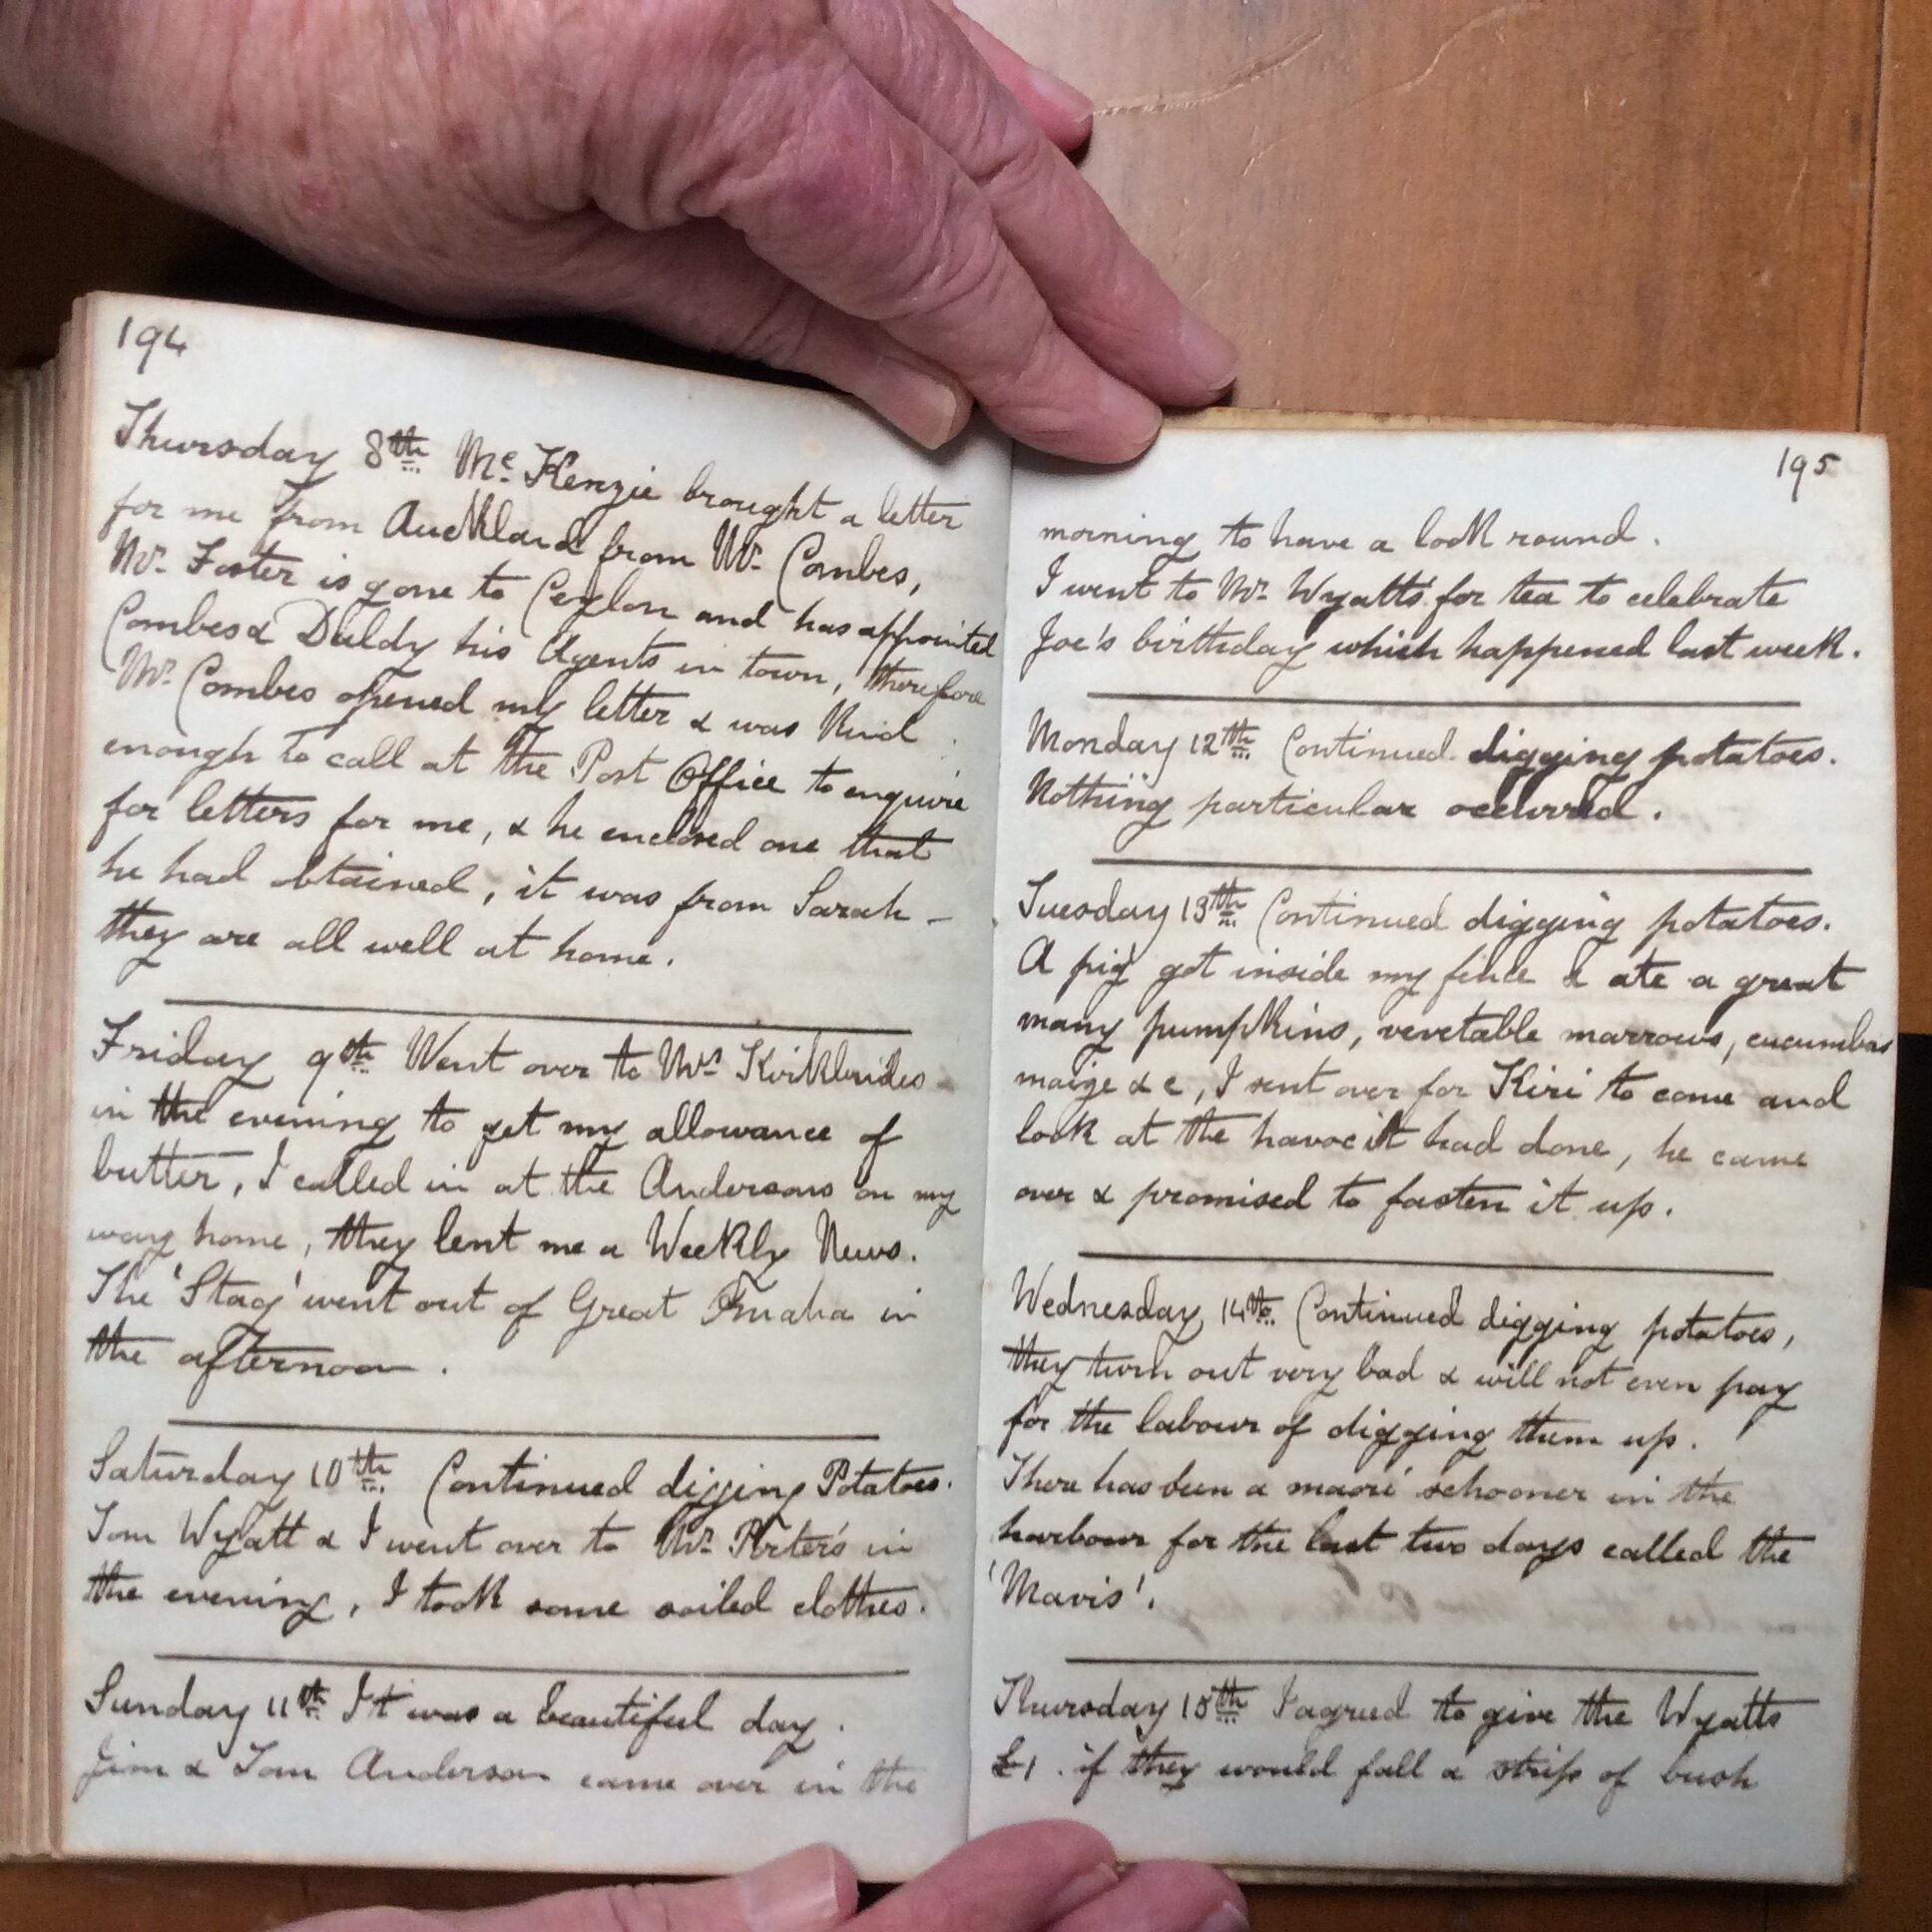 194
Thursday 8th Mc Kenzie brought a letter
for me from Auckland from Mr. Combes,
Mr. Foster is gone to Ceylon and has appointed
Combes & Daldy his Agents in town, therefore
Mr. Combes opened my letter & was kind
enough to call at the Post Office to enquire
for letters for me, & he enclosed one that
he had obtained, it was from Sarah –
they are all well at home.
Friday 9th Went over to Mrs Kirkbrides
in the evening to get my allowance of
butter, I called in at the Andersons on my
way home, they lent me a Weekly News.
The 'Stag' went out of Great Omaha in
the afternoon.
Saturday 10th Continued digging Potatoes.
Tom Wyatt & I went over to Mr. Porter's in
the evening, I took some soiled clothes.
Sunday 11th It was a beautiful day.
Jim & Tom Anderson came over in the
195
morning to have a look round.
I went to Mr. Wyatts for tea to celebrate
Joe's birthday which happened last week.
Monday 12th Continued digging potatoes.
Nothing particular occurred.
Tuesday 13th Continued digging potatoes.
A pig got inside my fence & ate a great
many pumpkins, vevetable marrows, cucumbers
maize &c, I sent over for Kiri to come and
look at the havoc it had done, he came
over & promised to fasten it up.
Wednesday 14th Continued digging potatoes,
they turn out very bad & will not even pay
for the labour of digging them up.
There has been a maori schooner in the
harbour for the last two days called the
'Mavis'.
Thursday 15th I agreed to give the Wyatts
£1. if they would fall a strip of bush